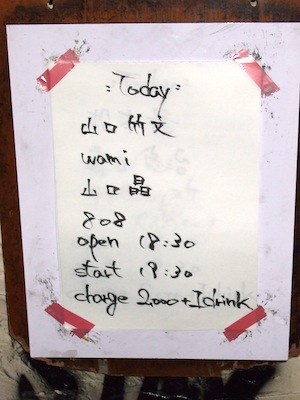 :Today:
山口竹文
wami
山口晶
808
open 18:30
start 19:30
charge 2,000+1drink